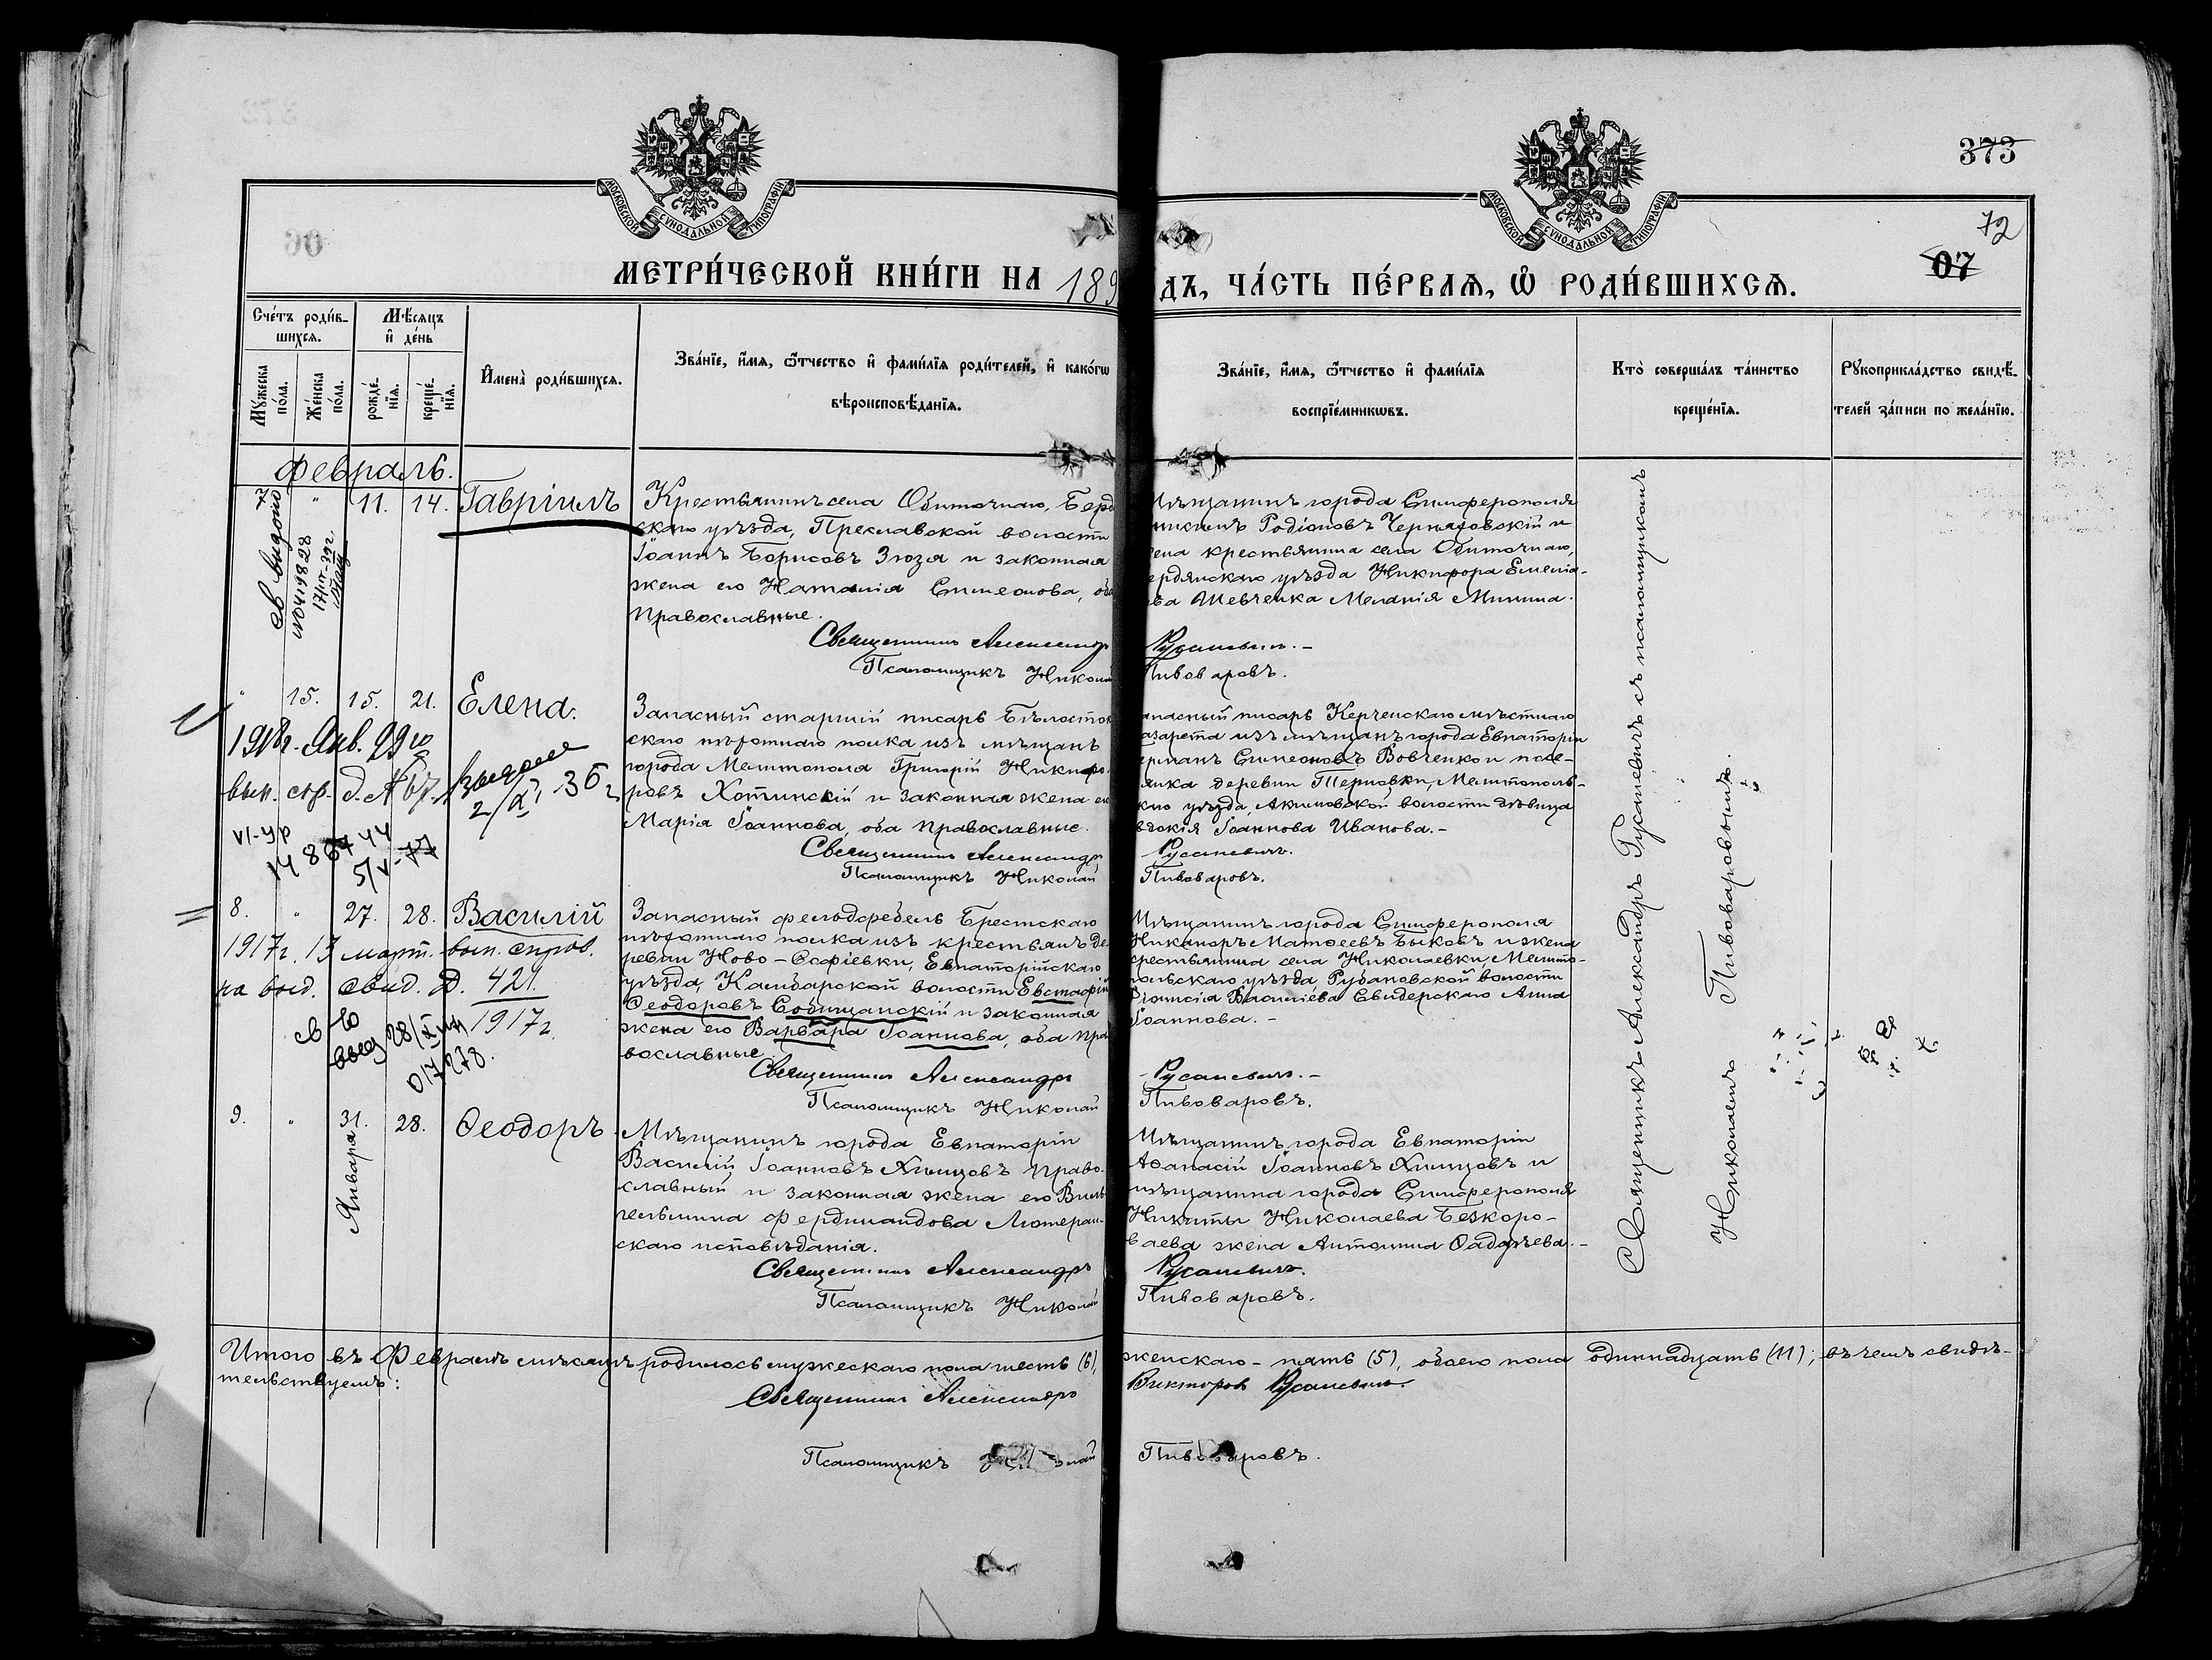 МОСКОВСКОЙ СѴНОДАЛЬНОЙ ТИПОГРАФІИ.
МОСКОВСКОЙ СѴНОДАЛЬНОЙ ТИПОГРАФІИ.
373
72
07
МЕТРИ́ЧЕСКОЙ КНИ́ГИ НА 189
ДЪ, ЧА́СТЬ ПЕ́РВАѦ, Ѽ РОДИ́ВШИХСѦ.
Сче́тъ роди́в-
шихсѧ.
Мꙋ́жеска
по́ла.
Же́нска
по́ла.
Мѣ́сяцъ
и҆ де́нь
рожде́-
нїѧ.
креще́-
нїѧ.
И҆мена̀ роди́вшихсѧ.
Зва́нїе, и҆́мѧ, ѻ҆́тчество и҆ фами́лїѧ роди́телей, и҆ како́гѡ
вѣроисповѣ́данїѧ.
Зва́нїе, и҆́мѧ, ѻ҆́тчество и҆ фами́лїѧ
воспрїе́мникѡвъ.
Кто̀ соверша́лъ та́инство
креще́нїѧ.
Рꙋкоприкла́дство свидѣ́-
телей за́писи по жела́нїю.
Февраль.
7 " 11. 14. Гавріилъ
св выдано
№ 019828
Крестьянинъ села Обиточнаго, Берд
скаго уѣзда, Преславской волости
Іоаннъ Борисовъ Зюзя и законная
жена его Наталія Симеонова, оба
православные.
Священникъ Александръ
Псаломщикъ Николай
Мѣщанинъ города Симферополя
Родіоновъ Чернаховскій и
жена крестьянина села Обиточнаго,
ердянскаго уѣзда Никифора Емелiа-
ва Шевченка Меланія Минина.
Русаневичъ.-
Пивоваровъ.
" 15. 15. 21. Елена.
1918г. Янв. 29го
вып. спр. д. № 67.
2/XI 36г
Запасный старшій писарь Бѣлосток
скаго пѣхотнаго полка изъ мѣщанъ
города Мелитополя Григорій Никифо
ровъ Хотинскій и законная жена его
Марія Іоаннова, оба православные.
Священникъ Александръ
Псаломщикъ Николай
апасный писарь Керченскаго мѣстнаго
азарета изъ мѣщанъ города Евпаторіи
ерманъ Симеоновъ Вовченко и посе-
янка деревни Терновки, Мелитополь-
каго уѣзда, Акимовской волости дѣвица
вдокія Іоаннова Иванова.-
Русаневичъ.
Пивоваровъ.
8. " 27. 28. Василій
1917г. 13 март. вып. справ.
на выд. свид. д. 421.
1917г.
Запасный фельдфебель Брестскаго
пѣхотнаго полка изъ крестьянъ де
ревни Ново-Софіевки, Евпаторійскаго
уѣзда, Камбарской волости Евстафій
Ѳеодоровъ Собищанскій и законная
жена его Варвара Іоаннова, оба пра
вославные.
Священникъ Александръ
Псаломщикъ Николай
Мѣщанинъ города Симферополя
Никаноръ Матѳеевъ Быковъ и жена
крестьянина села Николаевки, Мелито-
польскаго уѣзда, Рубановской волости
Діонисія Василіева Свидерскаго Анна
Іоаннова.-
Русаневичъ.-
Пивоваровъ.
9. " 31. 28. Ѳеодоръ.
Января
Мѣщанинъ города Евпаторіи
Василій Іоанновъ Химцовъ право-
славный и законная жена его Виль
гельмина Фердинандова Лютеран-
скаго исповѣданія.
Священникъ Александръ
Псаломщикъ Николай
Мѣщанинъ города Евпаторіи
Аѳанасій Іоанновъ Химцовъ и
мѣщанина города Симферополя
Никиты Николаева Безкоро-
ваева жена Антонина Ѳадѣева.-
Русаневичъ.
Пивоваровъ.
Священникъ Александръ Русаневичъ съ псаломщикомъ
Николаемъ Пивоваровымъ.
Итого въ Февралѣ мѣсяцѣ родилось мужескаго пола шесть (6),
женскаго - пять (5), обоего пола одиннадцать (11); въ чемъ свидѣ-
тельствуемъ:
Священникъ Александръ
Викторовъ Русаневичъ.
Псаломщикъ
Пивоваровъ.